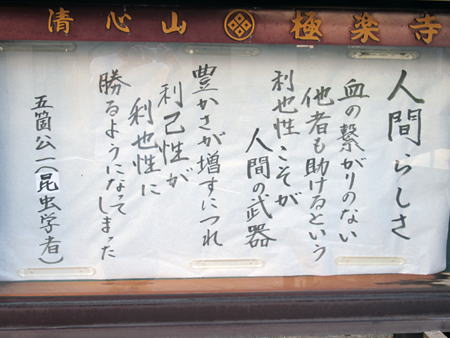 清心山 極楽寺
人間らしさ
血の繋がりのない
他者も助けるという
利他性こそが
人間の武器
豊かさが増すにつれ
利己性が
利他性に
勝るようになってしまった
五箇公一(昆虫学者)